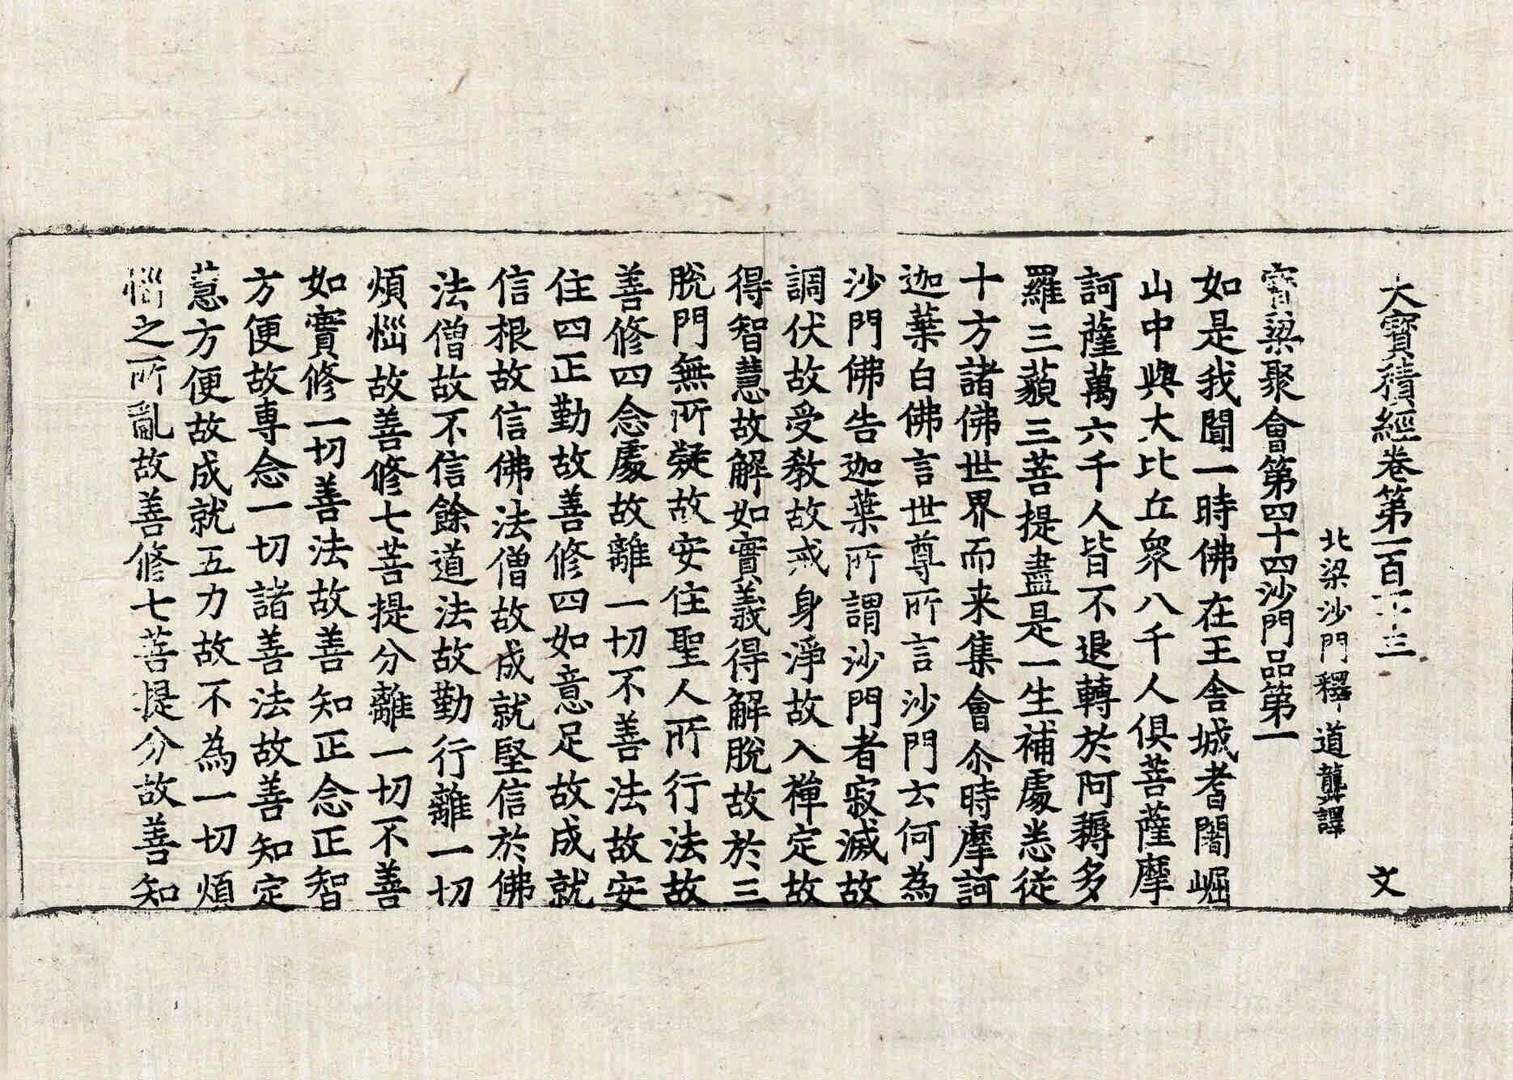 大寶積經卷第一百一十三
文
北梁沙門釋道龔譯
寶梁聚會第四十四沙門品第一
如是我聞一時佛在王舍城耆闍崛
山中與大比丘衆八千人俱菩薩摩
訶薩萬六千人皆不退轉於阿耨多
羅三藐三菩提盡是一生補處悉從
十方諸佛世界而来集會尒時摩訶
迦葉白佛言世尊所言沙門云何為
沙門佛告迦葉所謂沙門者寂滅故
調伏故受教故戒身淨故入禪定故
得智慧故解如實義得解脫故於三
脫門無所疑故安住聖人所行法故
善修四念處故離一切不善法故安
住四正勤故善修四如意足故成就
信根故信佛法僧故成就堅信於佛
法僧故不信餘道法故勤行離一切
煩惱故善修七菩提分離一切不善
如實修一切善法故善知正念正智
方便故專念一切諸善法故善知定
慧方便故成就五力故不為一切煩
惱之所亂故善修七菩提分故善知